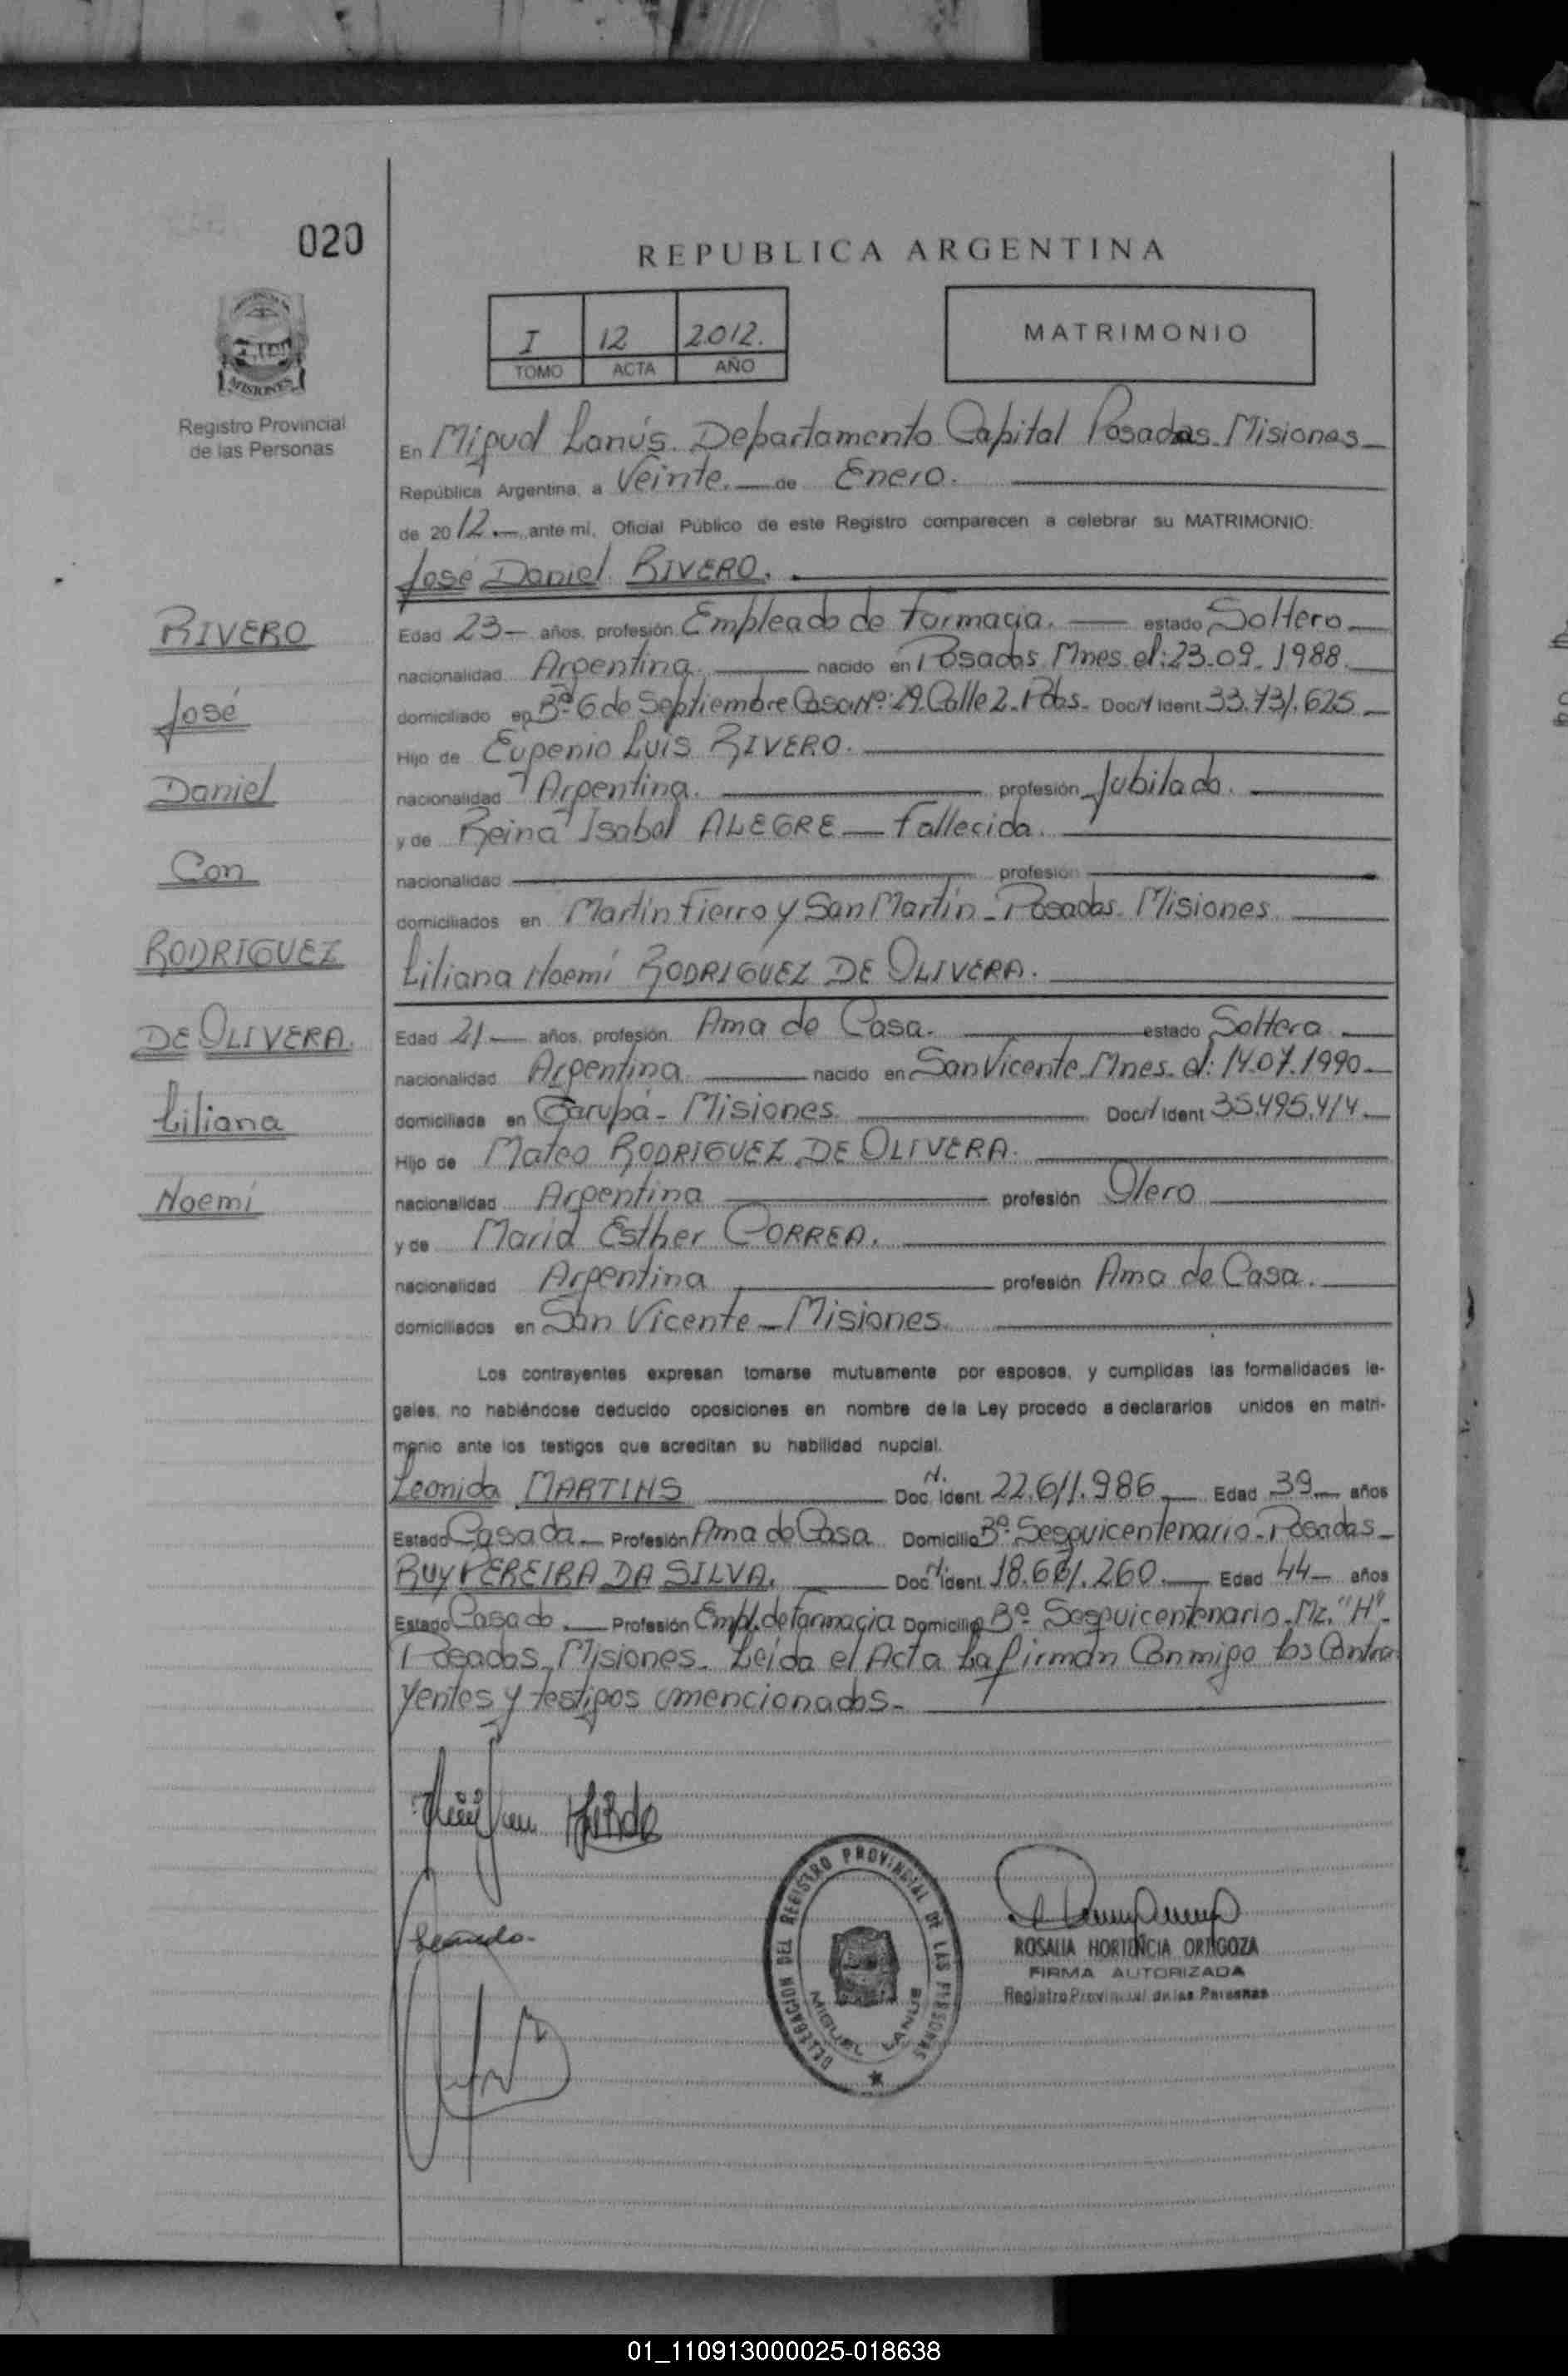 020
REPUBLICA ARGENTINA
MISIONES
Registro Provincial
de las Personas
I 12 2012.
TOMO ACTA AÑO
MATRIMONIO
En Miguel Lanús. Departamento Capital Posadas. Misiones
República Argentina, a Veinte. de Enero.
de 2012 ante mí, Oficial Público de este Registro comparecen a celebrar su MATRIMONIO:
José Daniel RIVERO.
Edad 23 años, profesión Empleado de Farmacia. estado Soltero
nacionalidad Argentina. nacido en Posadas. Mnes. el: 23-09-1988.
domiciliado en Bº 6 de Septiembre Casa Nº: 29. Calle 2. Pdas. Doc. Ident 33.731.625
Hijo de Eugenio Luis RIVERO.
nacionalidad Argentina. profesión Jubilado.
y de Reina Isabel ALEGRE — Fallecida.
nacionalidad profesión
domiciliados en Martín Fierro y San Martín - Posadas. Misiones
Liliana Noemí RODRIGUEZ DE OLIVERA.
Edad 21 años, profesión Ama de Casa. estado Soltera
nacionalidad Argentina nacido en San Vicente. Mnes. el: 14.07.1990
domiciliada en Garupá - Misiones. Doc. Ident 35.495.414
Hijo de Mateo RODRIGUEZ DE OLIVERA.
nacionalidad Argentina profesión Olero
y de María Esther CORREA.
nacionalidad Argentina profesión Ama de Casa.
domiciliados en San Vicente - Misiones.
Los contrayentes expresan tomarse mutuamente por esposos, y cumplidas las formalidades le-
gales, no habiéndose deducido oposiciones en nombre de la Ley procedo a declararlos unidos en matri-
monio ante los testigos que acreditan su habilidad nupcial.
Leonida MARTINS Doc. N. Ident 22.611.986 Edad 39 años
Estado Casada Profesión Ama de Casa Domicilio Bº Sesquicentenario - Posadas
RUY PEREIRA DA SILVA. Doc. N. Ident 18.661.260. Edad 44 años
Estado Casado Profesión Empl. de Farmacia Domicilio Bº Sesquicentenario. Mz. "H".
Posadas. Misiones. Leída el Acta La firman Conmigo los Contra
yentes y testigos mencionados.
RIVERO
José
Daniel
Con
RODRIGUEZ
DE OLIVERA.
Liliana
Noemí
DELEGACION DEL REGISTRO PROVINCIAL DE LAS PERSONAS
MIGUEL LANUS
ROSALIA HORTENCIA ORTIGOZA
FIRMA AUTORIZADA
Registro Provincial de las Personas
01_110913000025-018638